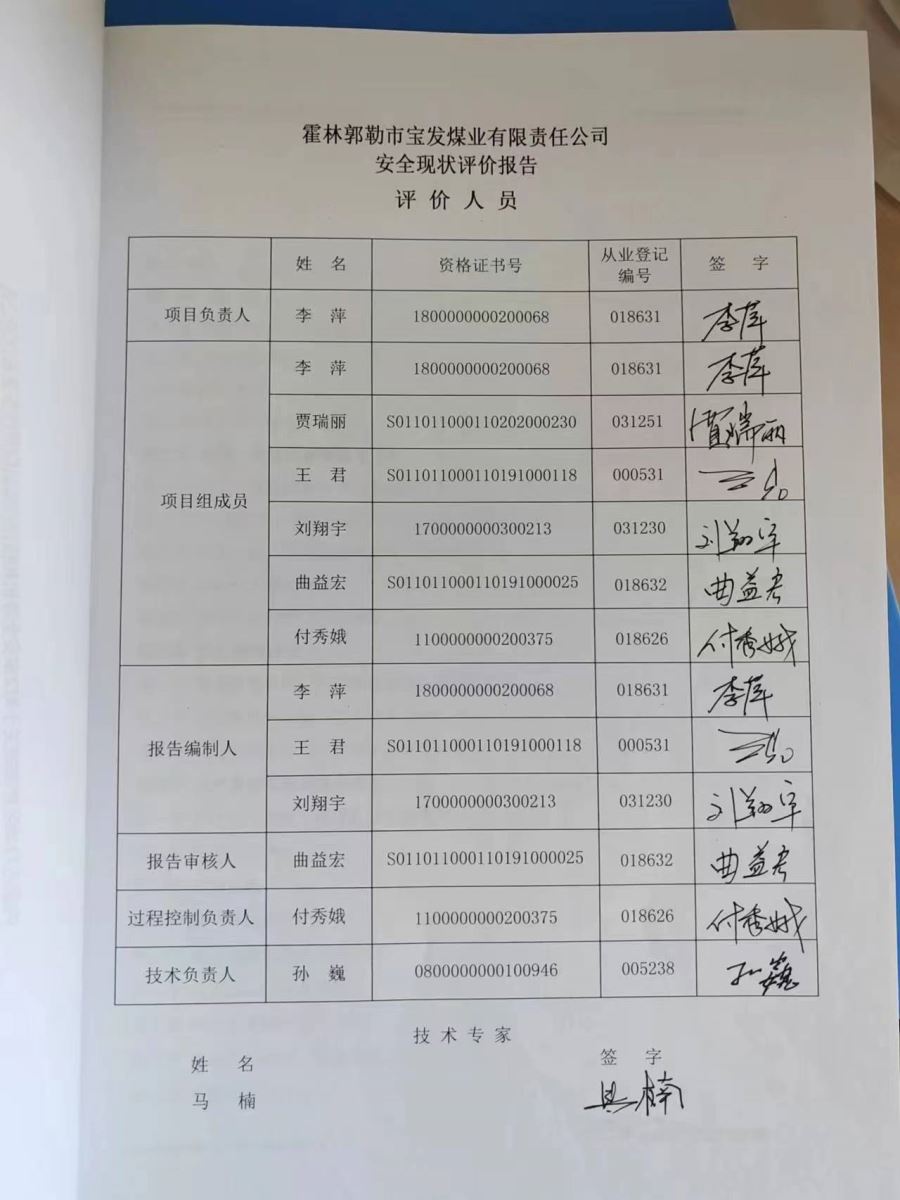 霍林郭勒市宝发煤业有限责任公司
安全现状评价报告
评价人员
姓 名 资格证书号 从业登记编号 签 字
项目负责人 李 萍 1800000000200068 018631 李萍
项目组成员 李 萍 1800000000200068 018631 李萍
贾瑞丽 S011011000110202000230 031251 贾瑞丽
王 君 S011011000110191000118 000531 王君
刘翔宇 1700000000300213 031230 刘翔宇
曲益宏 S011011000110191000025 018632 曲益宏
付秀娥 1100000000200375 018626 付秀娥
报告编制人 李 萍 1800000000200068 018631 李萍
王 君 S011011000110191000118 000531 王君
刘翔宇 1700000000300213 031230 刘翔宇
报告审核人 曲益宏 S011011000110191000025 018632 曲益宏
过程控制负责人 付秀娥 1100000000200375 018626 付秀娥
技术负责人 孙 巍 0800000000100946 005238 孙巍
技术专家
姓 名 签 字
马 楠 马楠